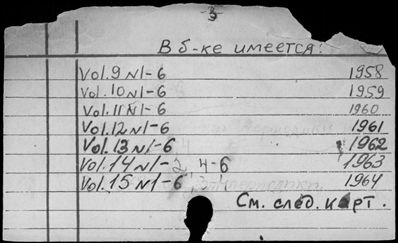 В б-ке имеется:
Vol.9 N1-6 1958
Vol.10 N1-6 1959
Vol.11 N1-6 1960
Vol.12 N1-6 1961
Vol.13 N1-6 1962
Vol.14 N1-2, 4-6 1963
Vol.15 N1-6 1964
См. след. карт.